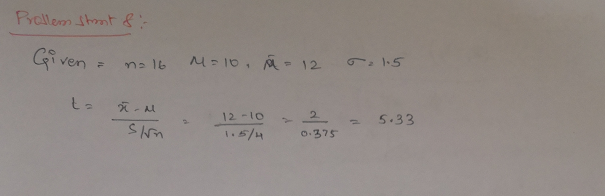 Problem stmt 8:-
Given = n=16 M=10, x̄ = 12 σ= 1.5
t = x̄ - M / S/√n = 12-10 / 1.5/4 = 2 / 0.375 = 5.33